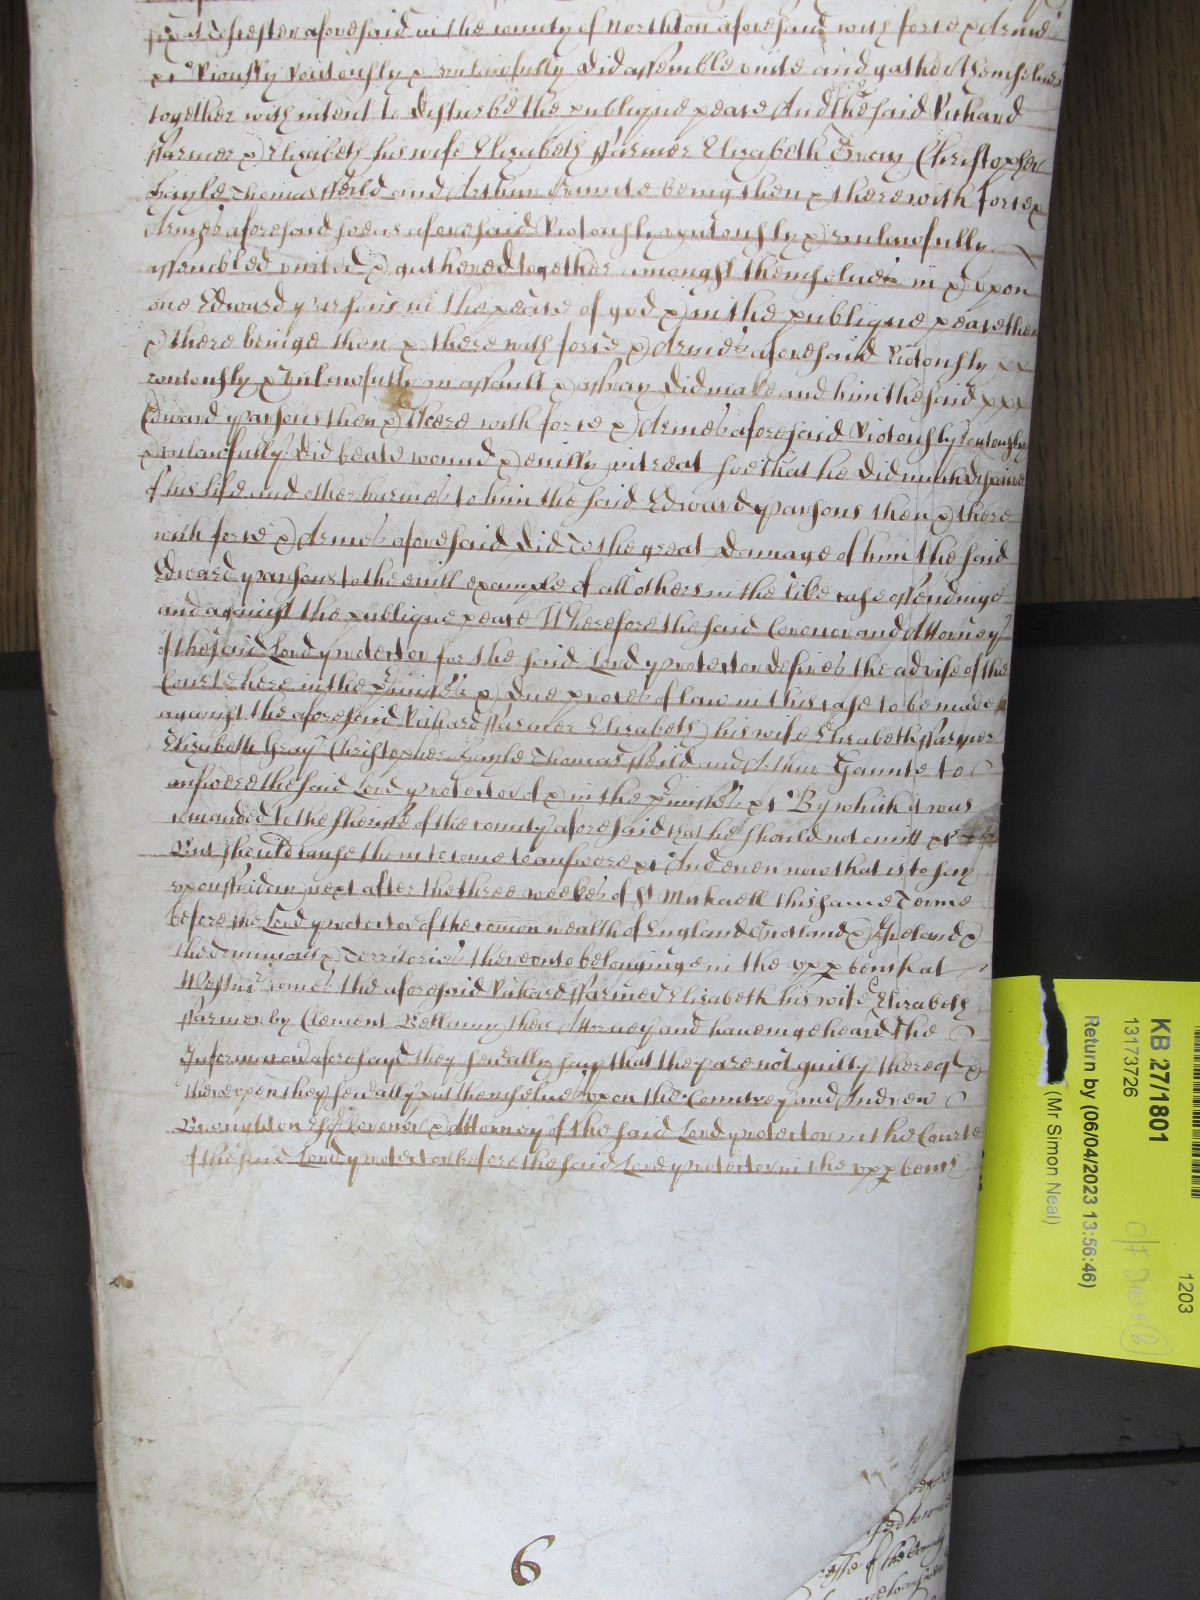 aforesaid in the county of Northton aforesaid with force & Armes
&c Riously Routously & unlawfully did assemble unite and gather themselves
together with intent to disturbe the publique peace And the said Richard
ffarmer & Elizabeth his wife Elizabeth ffarmer Elizabeth Gray Christopher
Gayle Thomas ffeild and Arthur Gaunte being then & there with force &
Armes aforesaid soe as aforesaid Riotously routously & unlawfully
assembled united & gathered together amongst themselves in & upon
one Edward Parsons in the peace of god & in the publique peace then
& there beinge then & there with force & Armes aforesaid Riotously xx
routously & unlawfully an assault & affray did make and him the said xxx
Edward Parsons then & there with force & Armes aforesaid Riotously routously
& unlawfully did beate wound & evilly intreat soe that he did much dispaire
of his life and other harmes to him the said Edward Parsons then & there
with force & Armes aforesaid did To the great damage of him the said
Edward Parsons to the evill example of all others in the like case offendinge
and against the publique peace Wherefore the said Coroner and Attorney
of the said Lord Protector for the said Lord Protector desires the advise of the
Courte here in the p'misses & due proces of law in this case to be made
against the aforesaid Richard ffarmer Elizabeth his wife Elizabeth ffarmer
Elizabeth Gray Christopher Gayle Thomas ffeild and Arthur Gaunte to
answere the said Lord Protector of & in the p'misses &c By which it was
comanded to the Sheriffe of the county aforesaid that he should not omitt &c
But should cause them to come to answere &c And even now that is to say
upon ffriday next after the three weekes of St Michaell this same Terme
before the Lord Protector of the comon wealth of England Scotland & Ireland &
the dominions & Territories thereunto belonginge in the upp bench at
Westmr comes the aforesaid Richard ffarmer Elizabeth his wife Elizabeth
ffarmer by Clement Bellamy their Attorney and haveinge heard the
Informacon aforesayd they severally say that they are not guilty thereof &
thereupon they severally put themselves upon the Countrey and Andrew
Broughton Esqr Coroner & Attorney of the said Lord Protector in the Courte
of the said Lord Protector before the said Lord Protector in the upp bench
6
KB 27/1801
13173726
Return by (06/04/2023 13:56:46)
(Mr Simon Neal)
1203
of the County